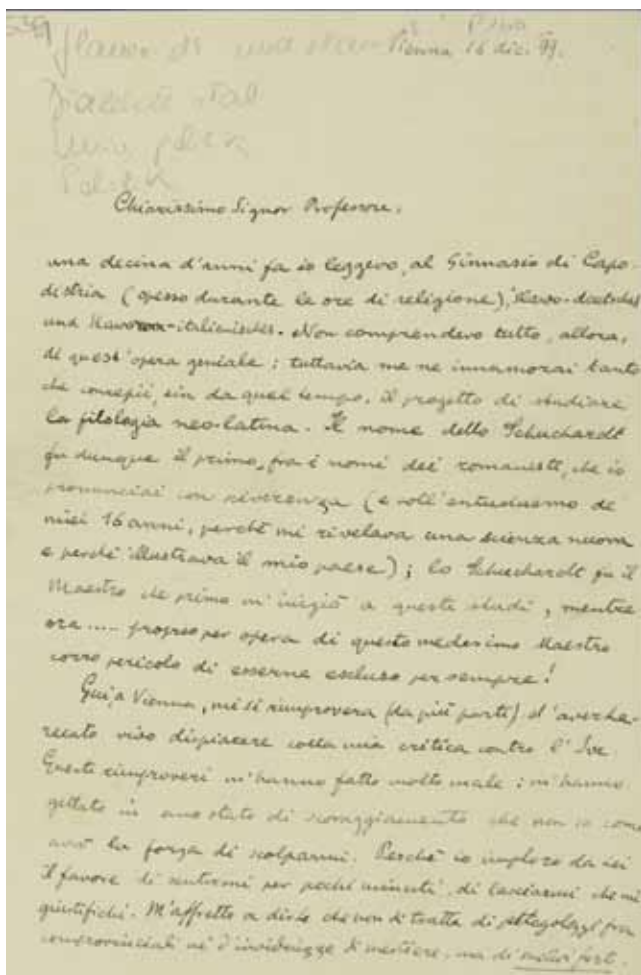 Vienna 16 dic. 99.
Chiarissimo Signor Professore,
una decina d'anni fa io leggevo, al Ginnasio di Capo-
distria (spesso durante le ore di religione), Slawo-deutsches
und Slawo-italienisches. Non comprendevo tutto, allora,
di quest'opera geniale; tuttavia me ne innamorai tanto
che concepii, sin da quel tempo, il progetto di studiare
la filologia neo-latina. Il nome dello Schuchardt
fu dunque il primo, fra i nomi dei romanisti, che io
pronunciai con riverenza (e coll'entusiasmo de'
miei 16 anni, perchè mi rivelava una scienza nuova
e perchè illustrava il mio paese); lo Schuchardt fu il
Maestro che primo m'iniziò a questi studi, mentre
ora..... proprio per opera di questo medesimo Maestro
corro pericolo di esserne escluso per sempre!
Qui, a Vienna, mi si rimprovera (da più parti) d'aver
recato dispiacere colla mia critica contro l'Ive.
Questi rimproveri m'hanno fatto molto male; m'hanno
gettato in uno stato di scoraggiamento che non so come
avrò la forza di scolparmi. Perchè io imploro da Lei
il favore di sentirmi per pochi minuti, di lasciarmi che mi
giustifichi. M'affretto a dirle che non si tratta di pettegolezzi fra
comprovinciali nè d'invidiuzze di mestiere, ma di motivi forti.